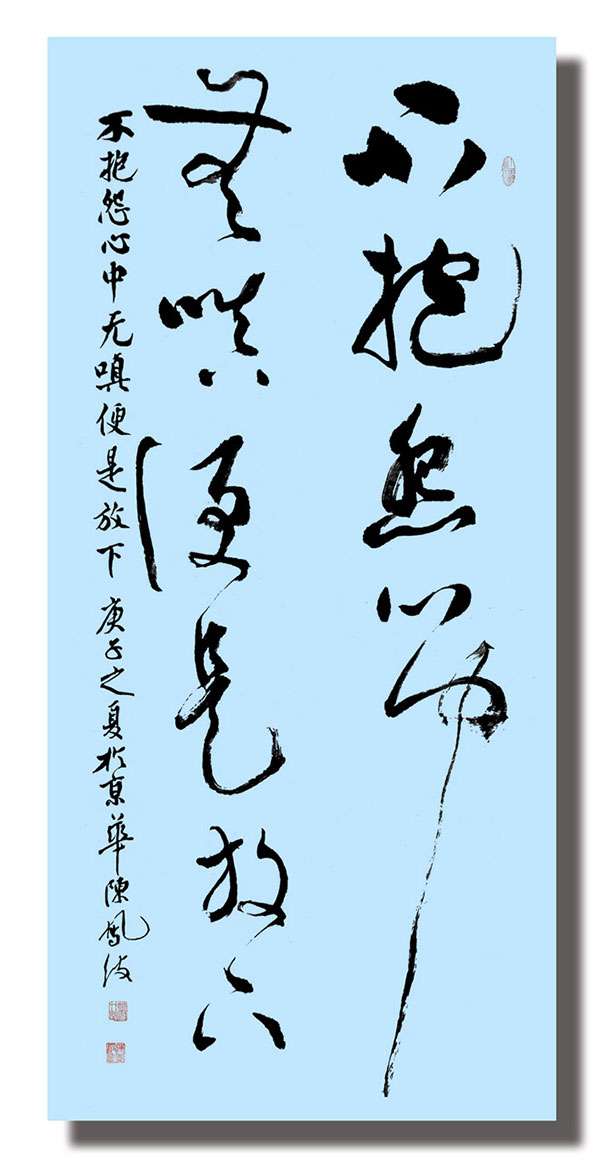 不抱怨心中
無嗔便是放下
不抱怨心中无嗔便是放下 庚子之夏於京華陳鳳